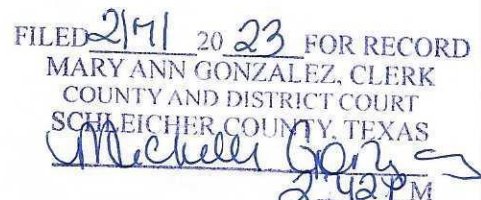 FILED 2/7/ 20 23 FOR RECORD
MARY ANN GONZALEZ, CLERK
COUNTY AND DISTRICT COURT
SCHLEICHER COUNTY, TEXAS
Michelle
2:42 P M